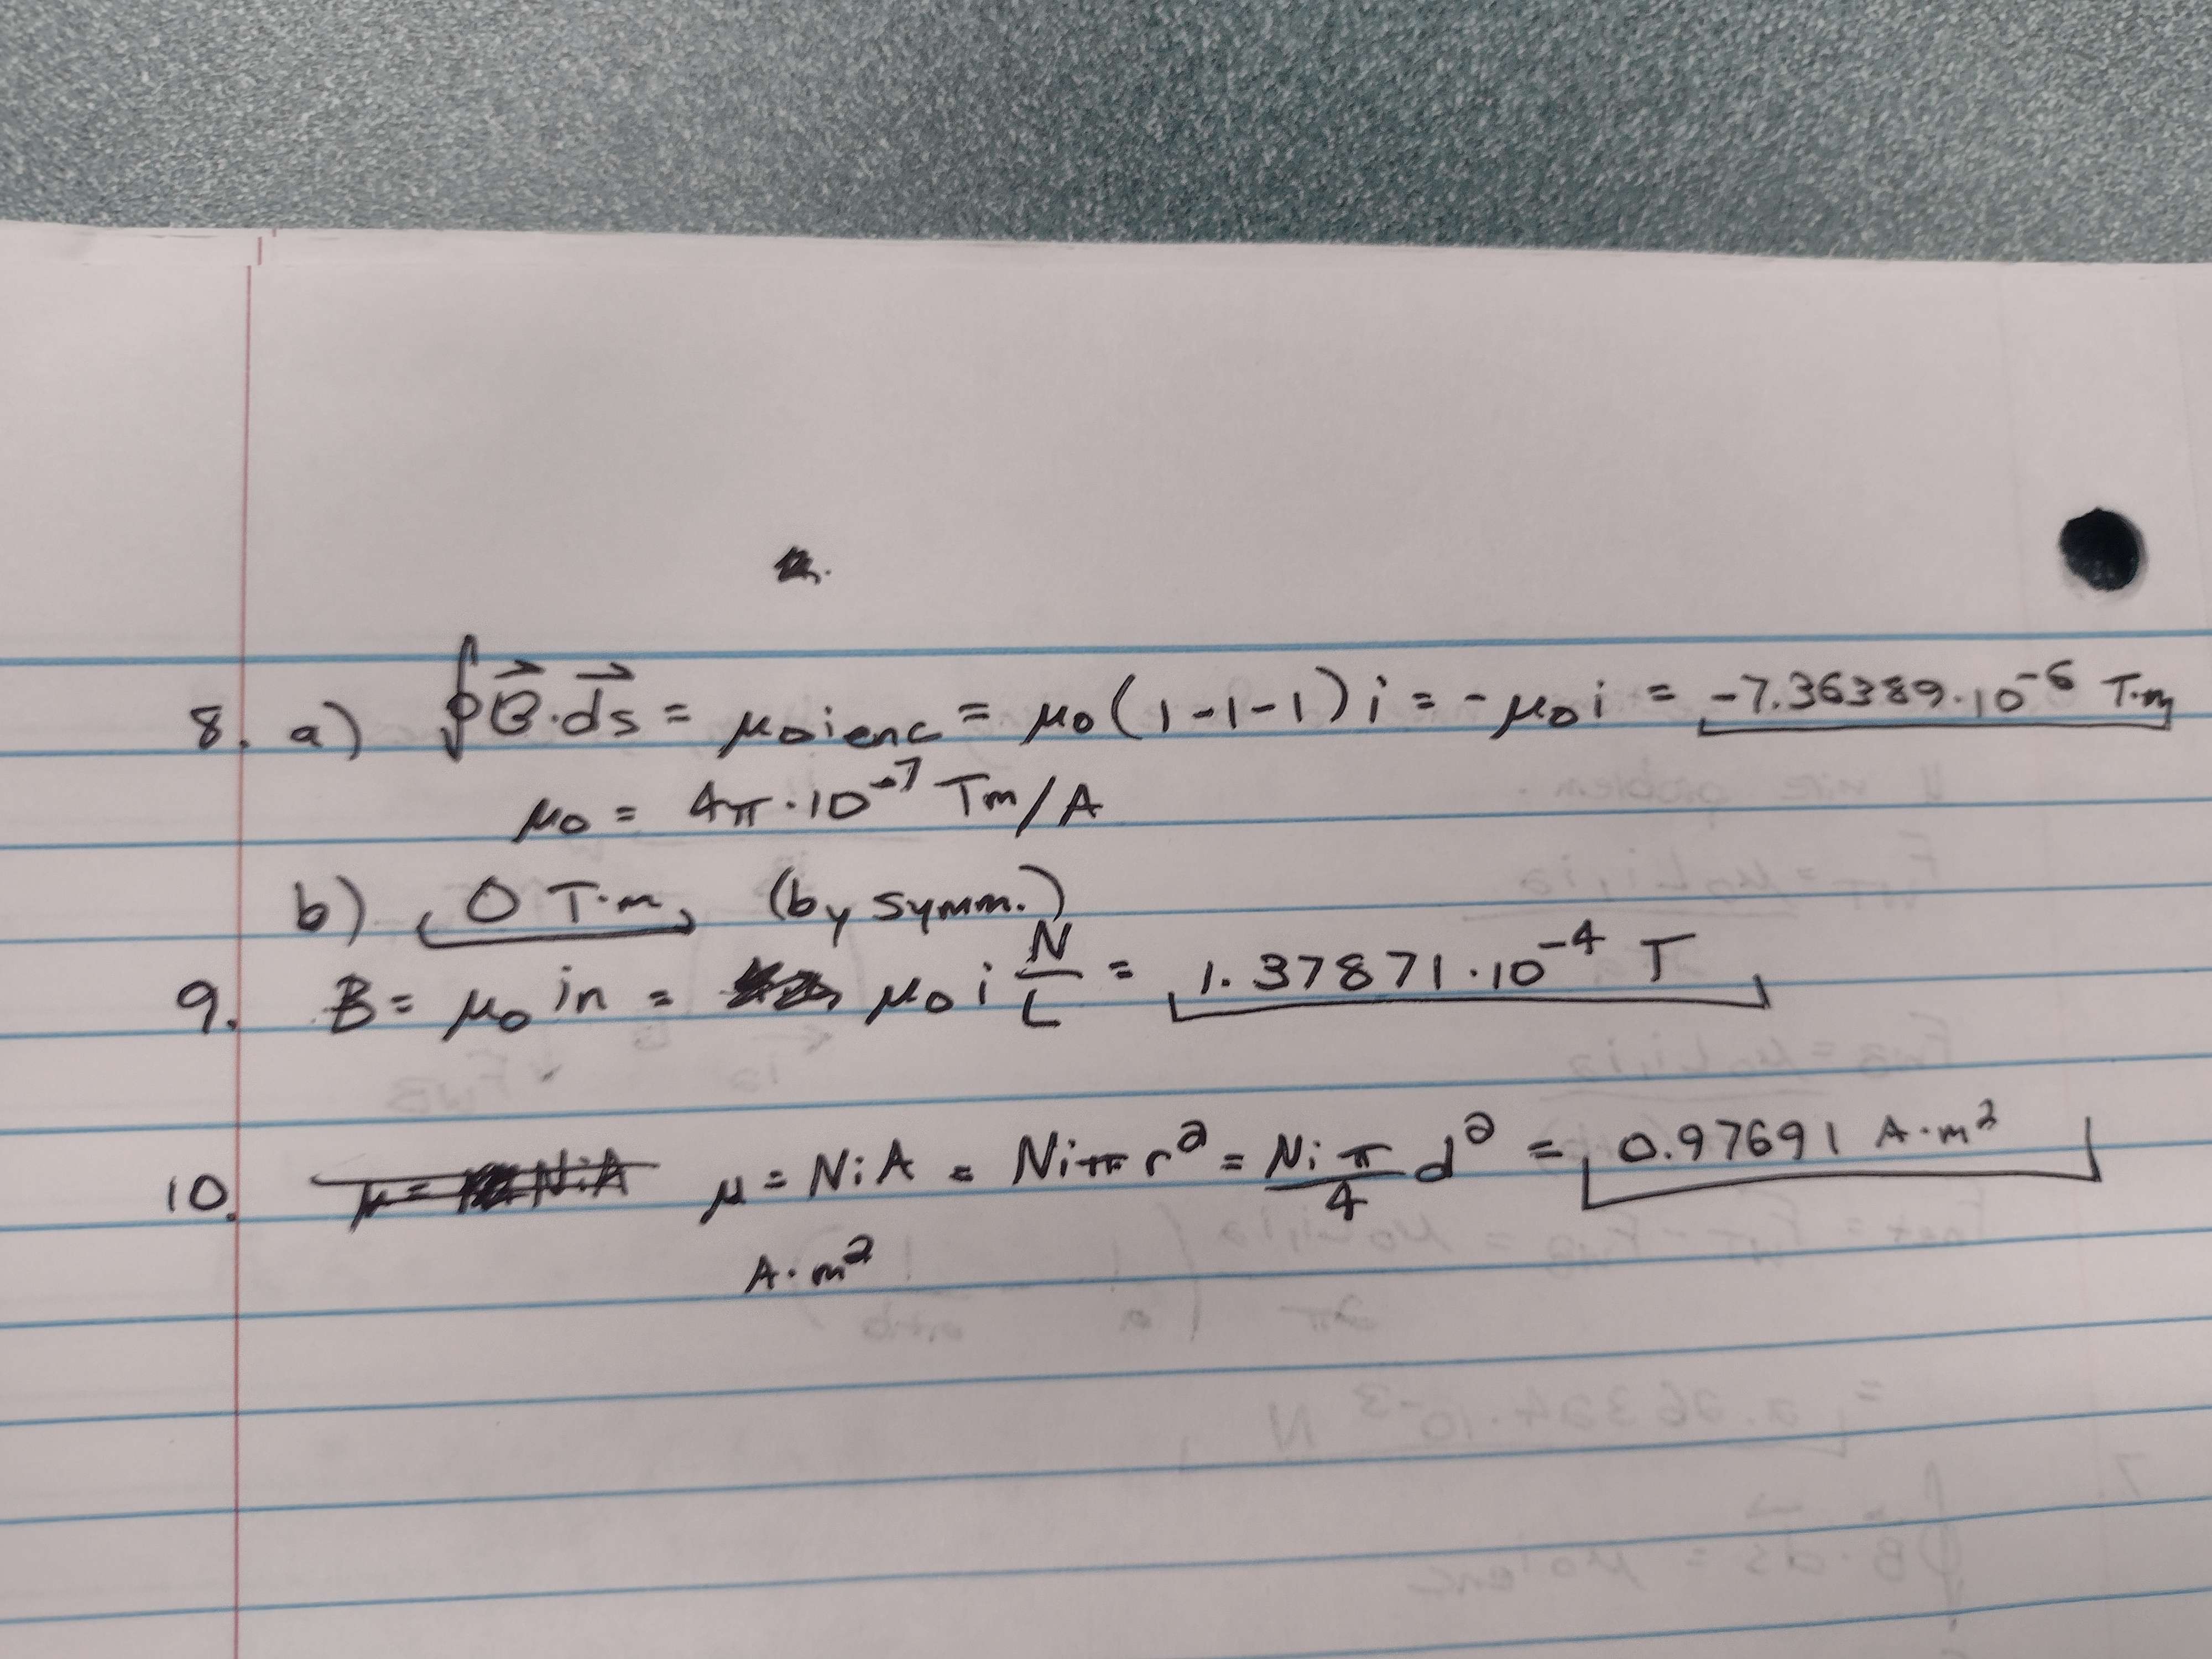 8. a) ∮B⃗·d⃗s = μ₀i enc = μ₀(1-1-1)i = -μ₀i = -7.36389·10⁻⁶ T·m
μ₀ = 4π·10⁻⁷ Tm/A
b) 0 T·m (by symm.)
9. B = μ₀in = μ₀i N/L = 1.37871·10⁻⁴ T
10. μ = NiA μ = NiA = Niπr² = Niπ/4 d² = 0.97691 A·m²
A·m²